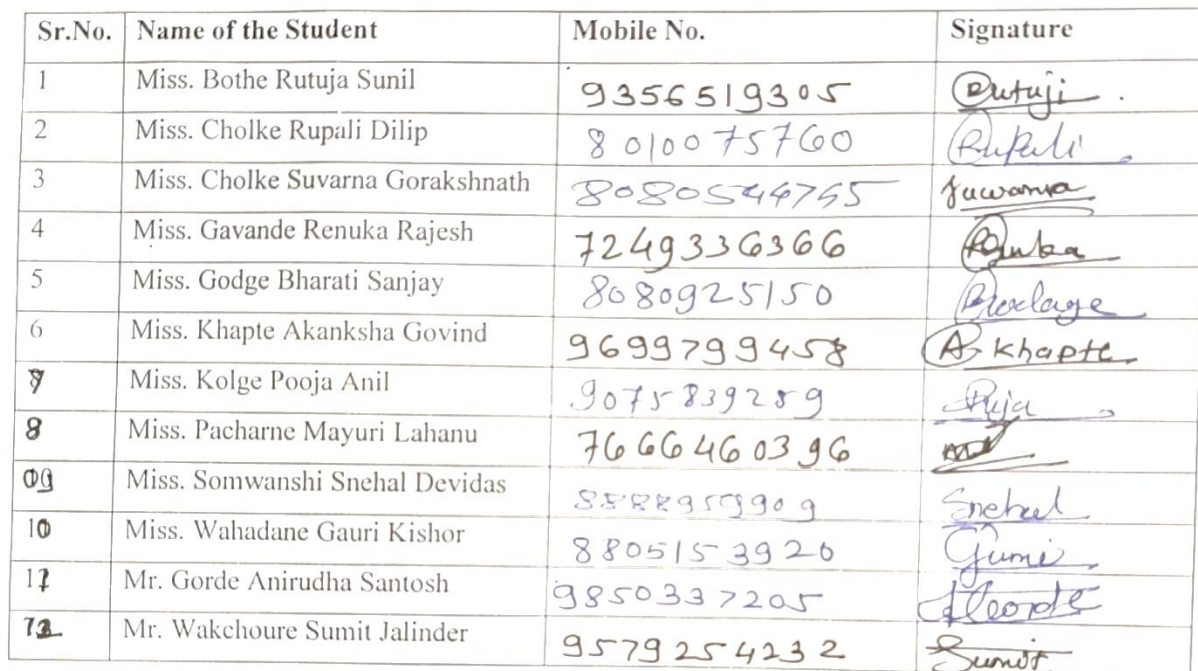 Sr.No. Name of the Student Mobile No. Signature
1 Miss. Bothe Rutuja Sunil 9356519305 Rutuji
2 Miss. Cholke Rupali Dilip 8010075760 Rupali
3 Miss. Cholke Suvarna Gorakshnath 8080544765 Suvarna
4 Miss. Gavande Renuka Rajesh 7249336366 Renuka
5 Miss. Godge Bharati Sanjay 8080925150
6 Miss. Khapte Akanksha Govind 9699799458 A. Khapte
7 Miss. Kolge Pooja Anil 9075839259 Puja
8 Miss. Pacharne Mayuri Lahanu 7666460396
09 Miss. Somwanshi Snehal Devidas Snehal
10 Miss. Wahadane Gauri Kishor 8805153920
11 Mr. Gorde Anirudha Santosh 9850337205
12 Mr. Wakchoure Sumit Jalinder 9579254232 Sumit